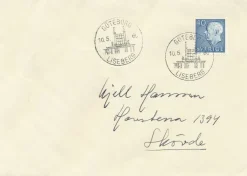 GÖTEBORG
10.5
LISEBERG
GÖTEBORG
10.5
LISEBERG
40
SVERIGE
Kjell Hammar
Havstena 1394
Skövde